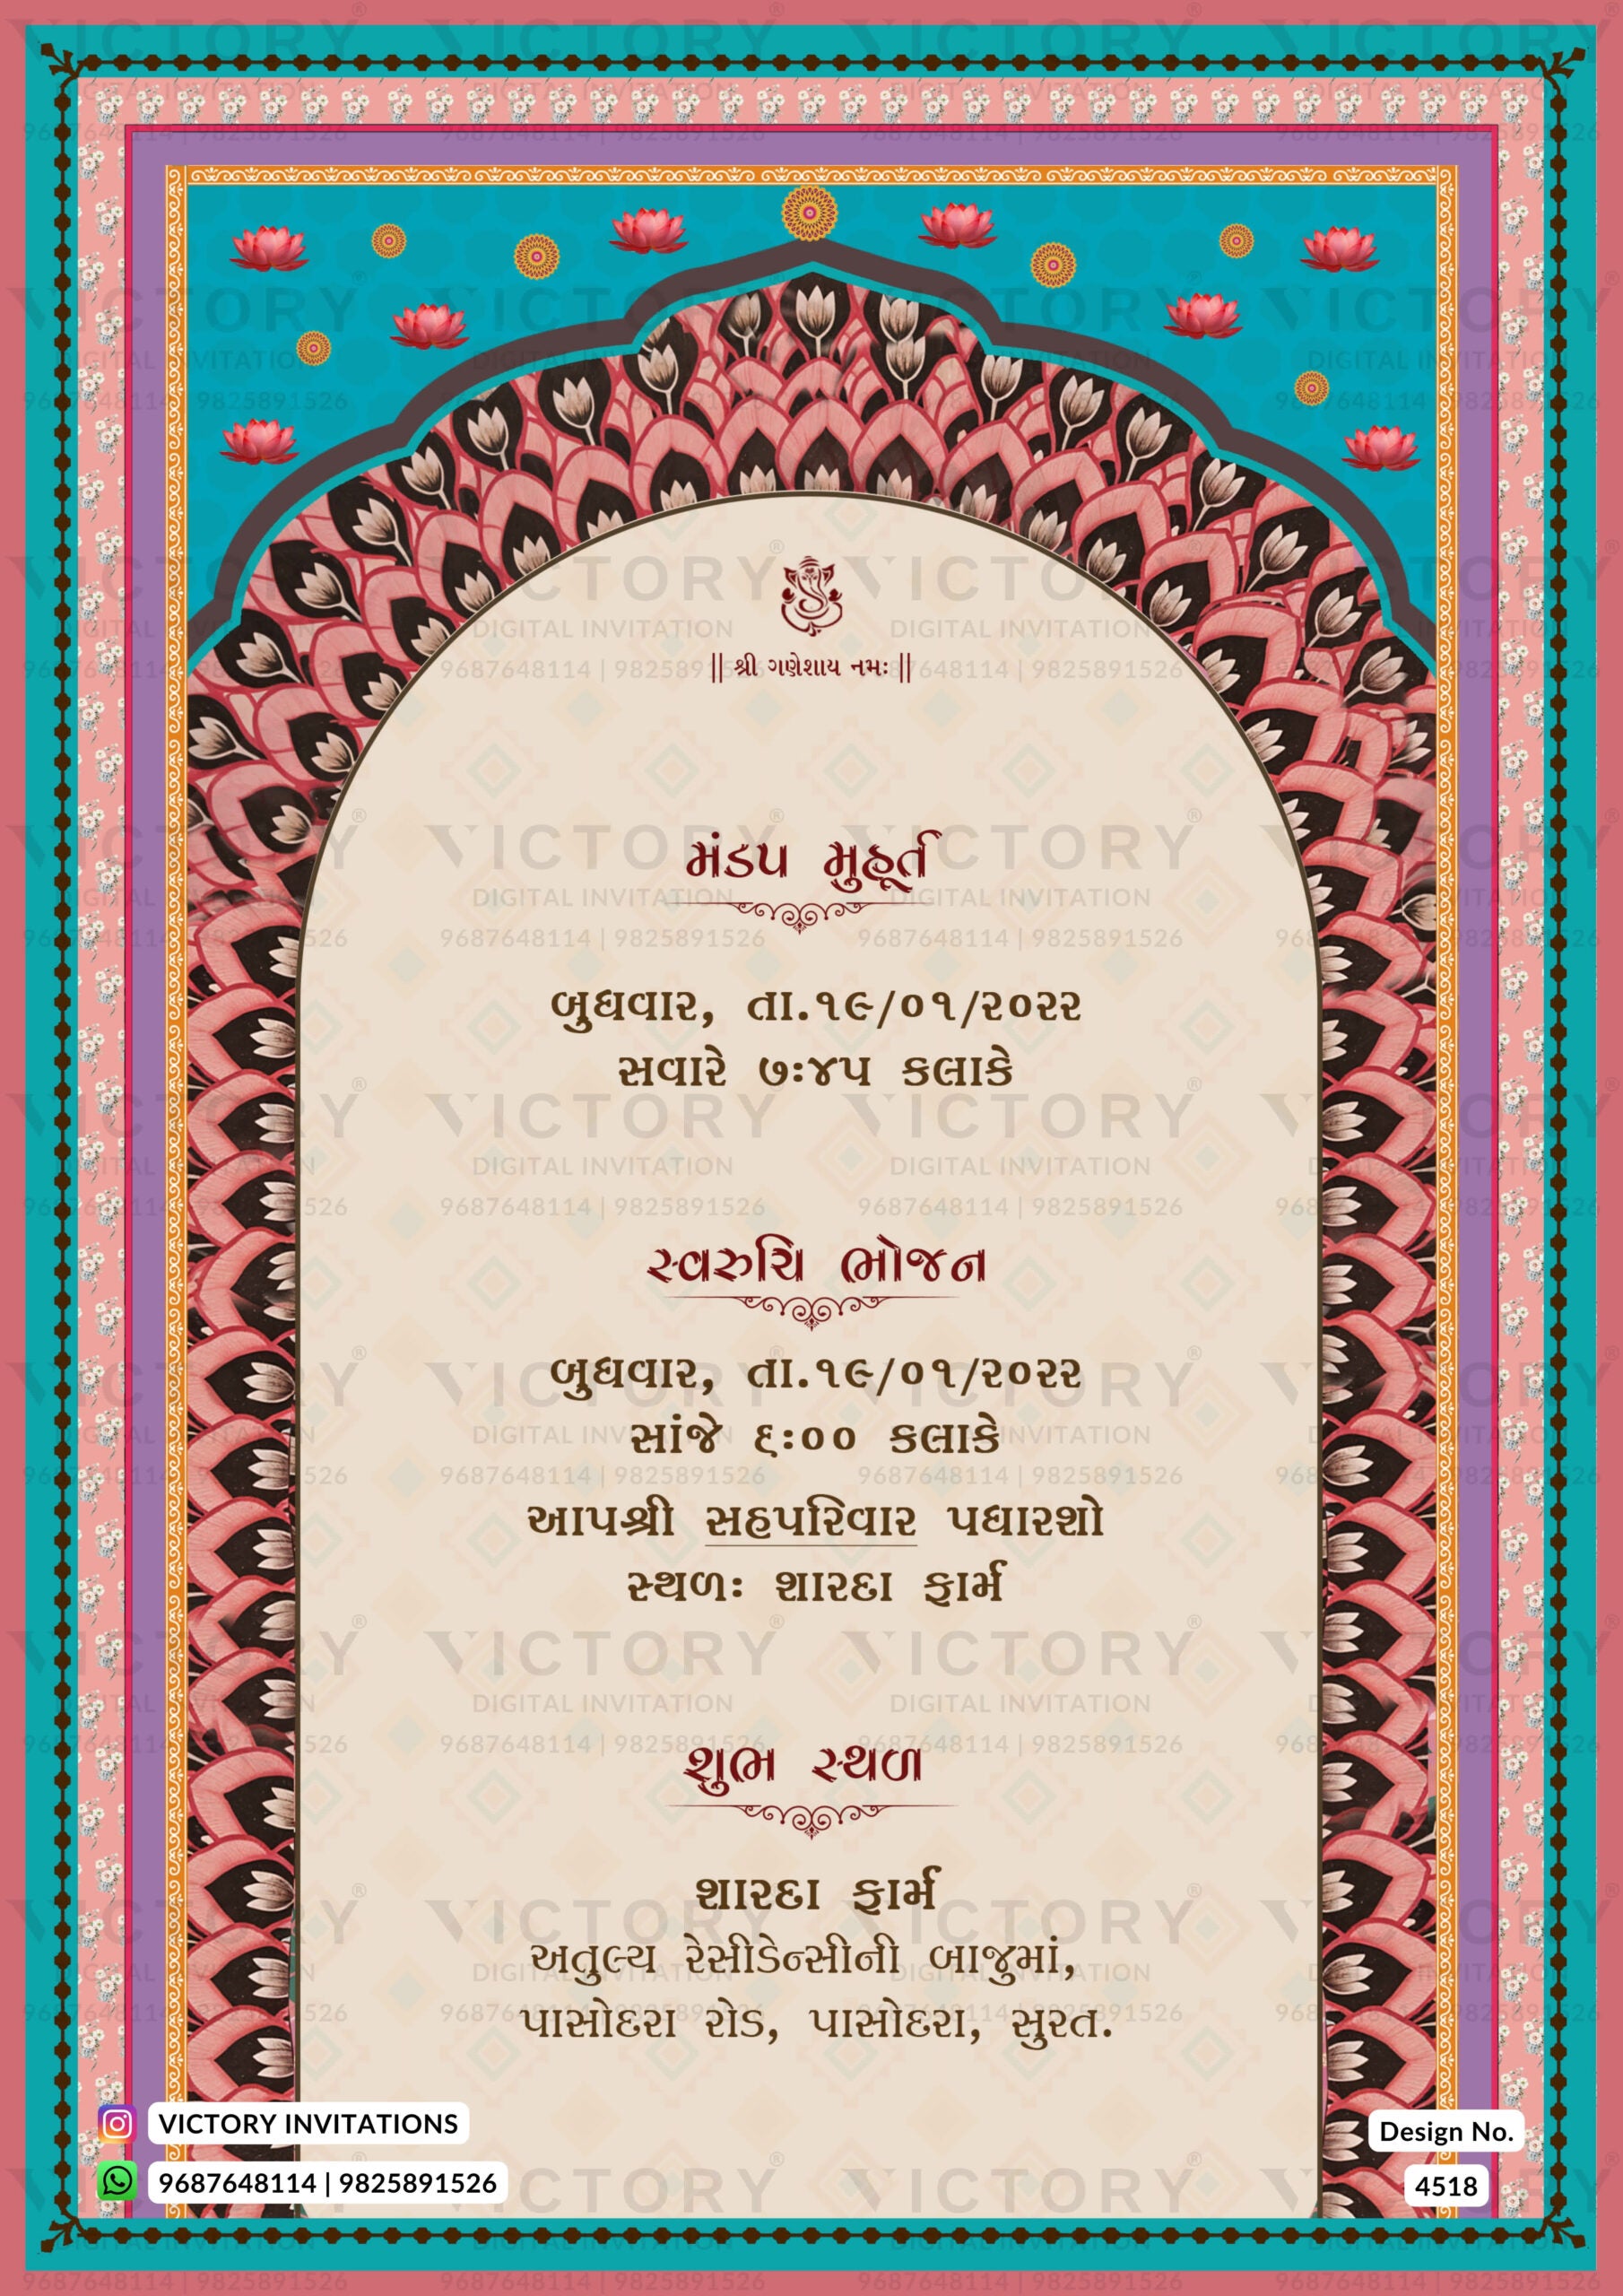 || શ્રી ગણેશાય નમઃ ||
મંડપ મુહૂર્ત
બુધવાર, તા.૧૯/૦૧/૨૦૨૨
સવારે ૭:૪૫ કલાકે
સ્વરુચિ ભોજન
બુધવાર, તા.૧૯/૦૧/૨૦૨૨
સાંજે ૬:૦૦ કલાકે
આપશ્રી સહપરિવાર પધારશો
સ્થળઃ શારદા ફાર્મ
શુભ સ્થળ
શારદા ફાર્મ
અતુલ્ય રેસીડેન્સીની બાજુમાં,
પાસોદરા રોડ, પાસોદરા, સુરત.
VICTORY INVITATIONS
9687648114 | 9825891526
Design No.
4518
VICTORY®
DIGITAL INVITATION
9687648114 | 9825891526